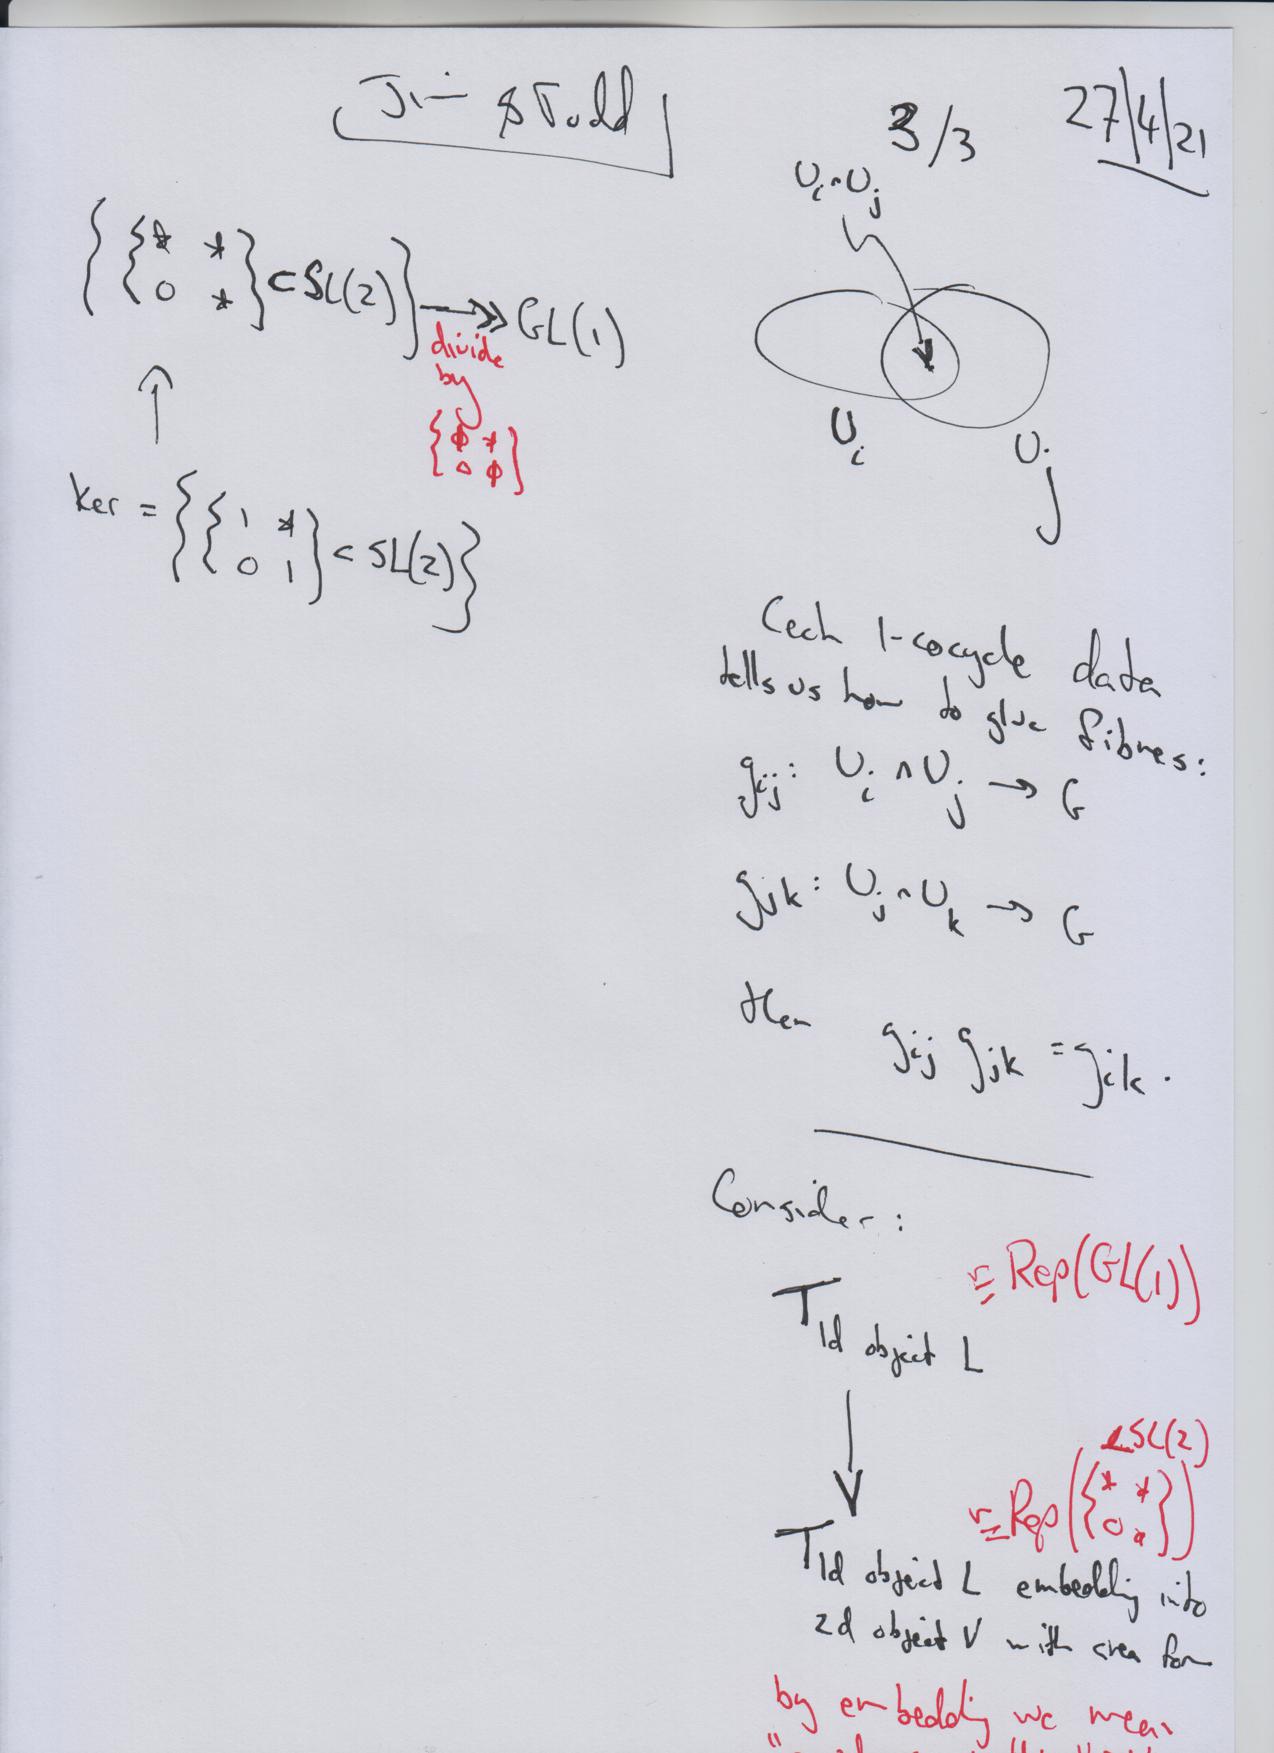 Jim & Todd
3/3
27/4/21
{ { * *
0 * } ⊂ SL(2) } ↠ GL(1)
divide
by
{ ϕ *
0 ϕ }
↑
ker = { { 1 *
0 1 } ⊂ SL(2) }
U_i ∩ U_j
U_i
U_j
Cech 1-cocycle data
tells us how to glue fibres:
g_ij : U_i ∩ U_j → G
g_jk : U_j ∩ U_k → G
then g_ij g_jk = g_ik .
Consider :
T 1d object L
≃ Rep(GL(1))
↓
T 1d object L embedding into
2d object V with area form
≃ Rep( { * *
0 * } ) ⊂ SL(2)
by embedding we mean